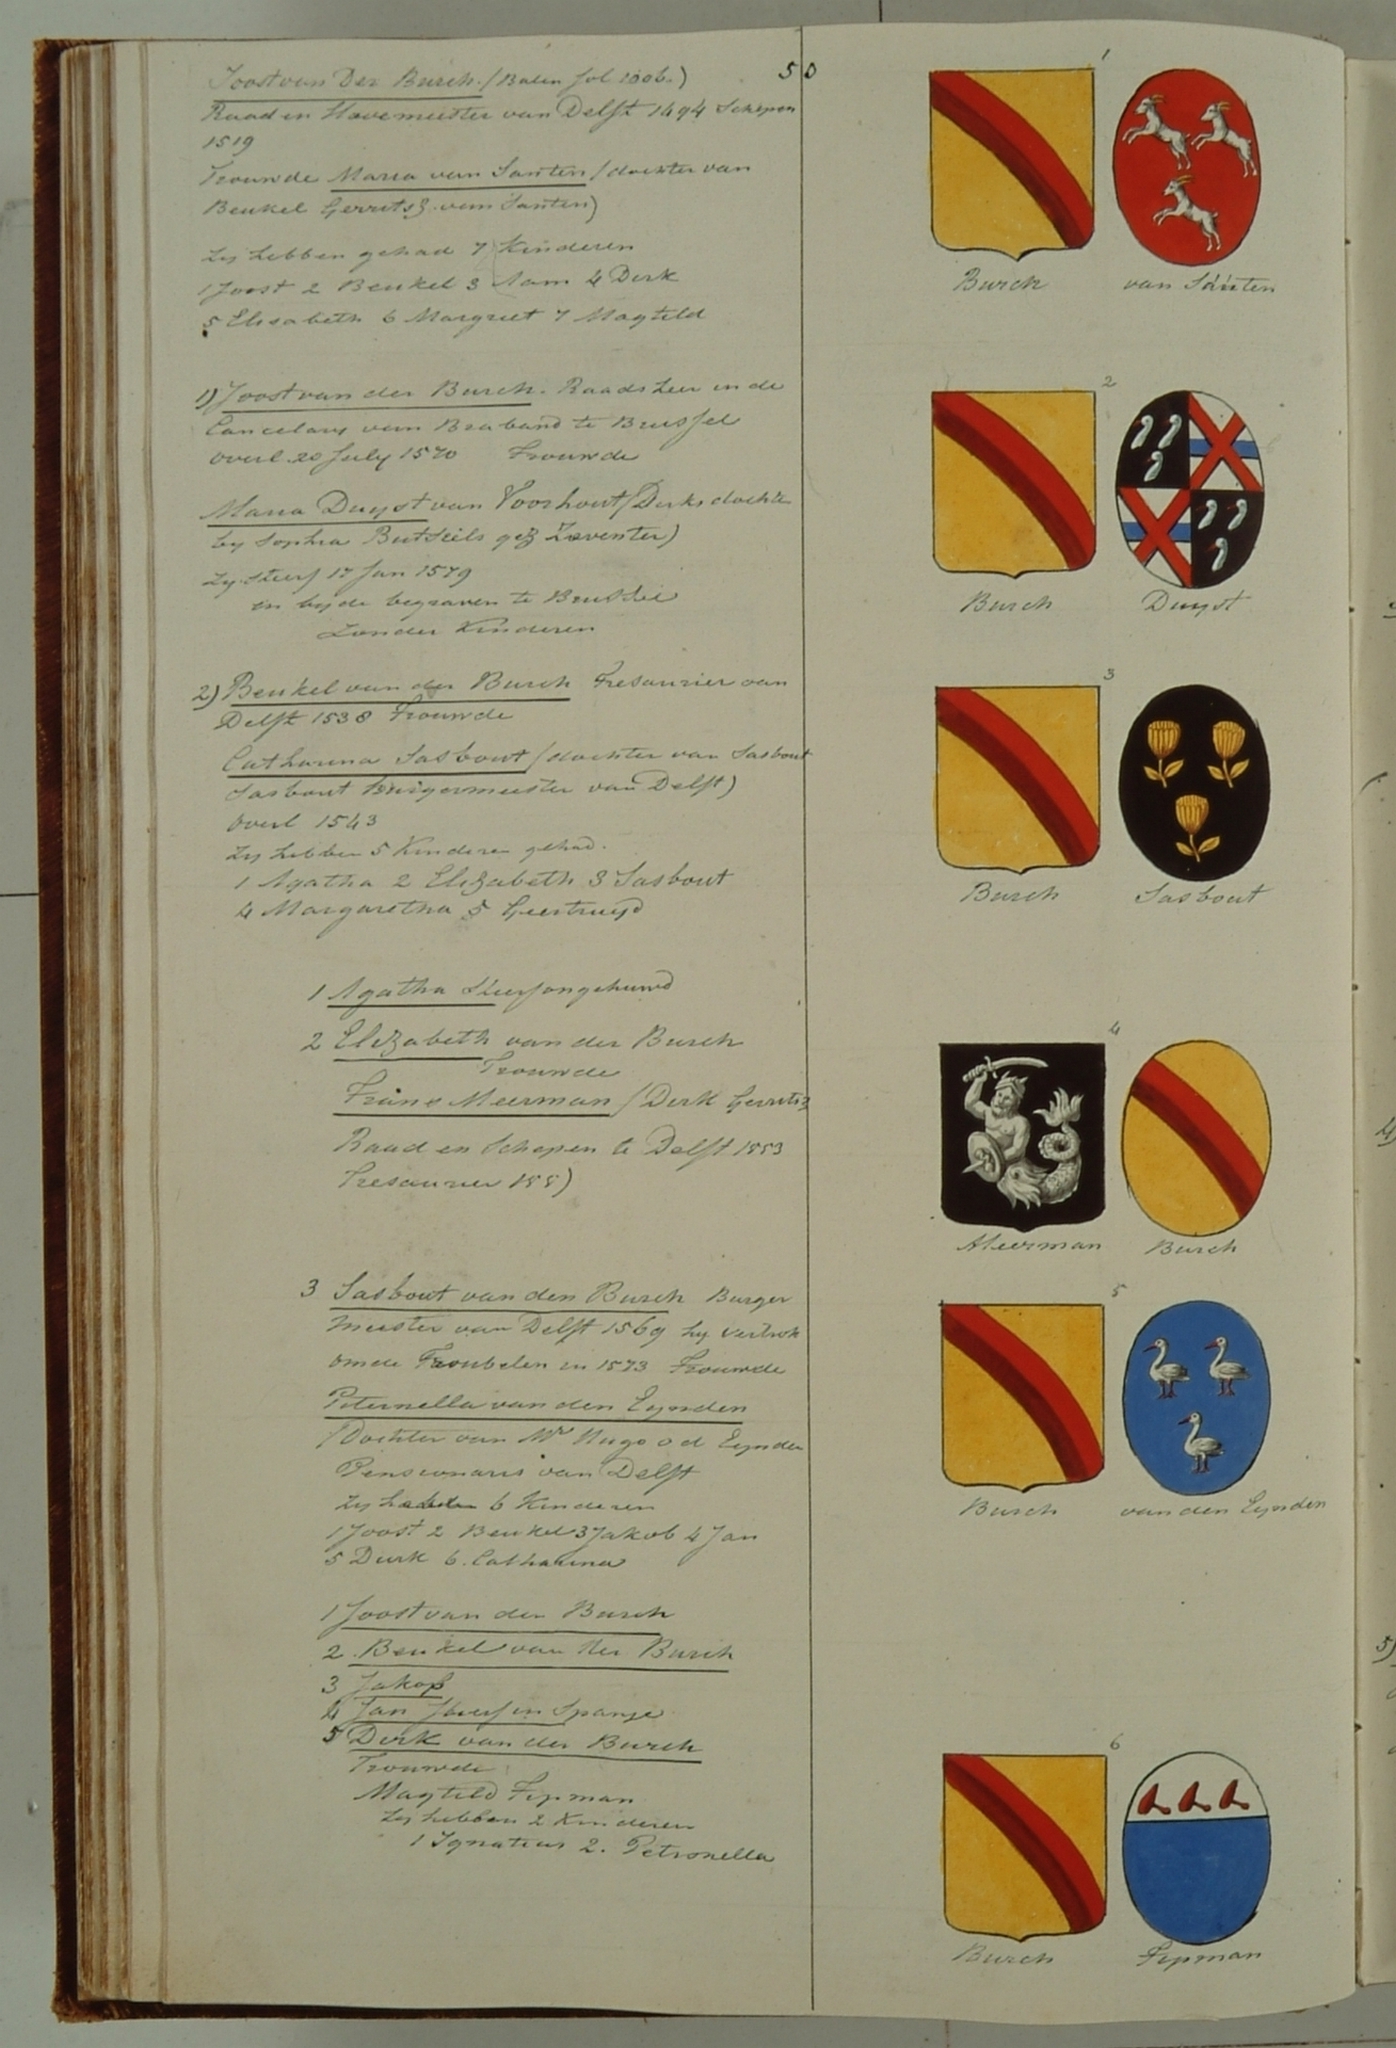 50
Joost van Der Burch. (Balen fol 1006.)
Raad en Havemeester van Delft 1494 Schepen
1519
Trouwde Maria van Santen (dochter van
Beukel Gerrutsz. van Santen)
Zy hebben gehad 7 Kinderen
1 Joost 2 Beukel 3 4 Dirk
5 Elisabeth 6 Margriet 7 Magteld
1) Joost van der Burch. Raads heer in de
Cancelary van Braband te Brussel
overl 20 July 1570 Trouwde
Maria Duyst van Voorhout (Dirks dochte
by Sophia gez )
Zy Sterf 17 Jan 1579
en byde begraven te Brussel
Zonder Kinderen
2) Beukel van der Burch Tresaurier van
Delft 1538 Trouwde
Catharina Sasbout (dochter van Sasbout
Sasbout Burgermeester van Delft)
overl 1543
Zy hebben 5 Kinderen gehad.
1 Agatha 2 Elizabeth 3 Sasbout
4 Margaretha 5 Geertruyd
1 Agatha Sterf ongehuwd
2 Elizabeth van der Burch
Trouwde
Frans Meerman (Dirk Gerrutsz
Raad en Schepen te Delft 1553
Tresaurier 155)
3 Sasbout van den Burch Burger
meester van Delft 1569 hy vertrok
om de Troubelen in 1573 Trouwde
Peternella van den Eynden
(Dochter van Mr Hugo v d Eynden
Pensionaris van Delft
Zy hadden 6 Kinderen
1 Joost 2 Beukel 3 Jakob 4 Jan
5 Durk 6. Catharina
1 Joost van der Burch
2 Beukel van der Burch
3 Jakob
4 Jan Sterf in Spanje
5 Dirk van der Burch
Trouwde
Magteld Fipman
Zy hebben 2 Kinderen
1 Ignatius 2. Petronella
1
Burch van Santen
2
Burch Duyst
3
Burch Sasbout
4
Meerman Burch
5
Burch van den Eynden
6
Burch Fipman
4)
5)